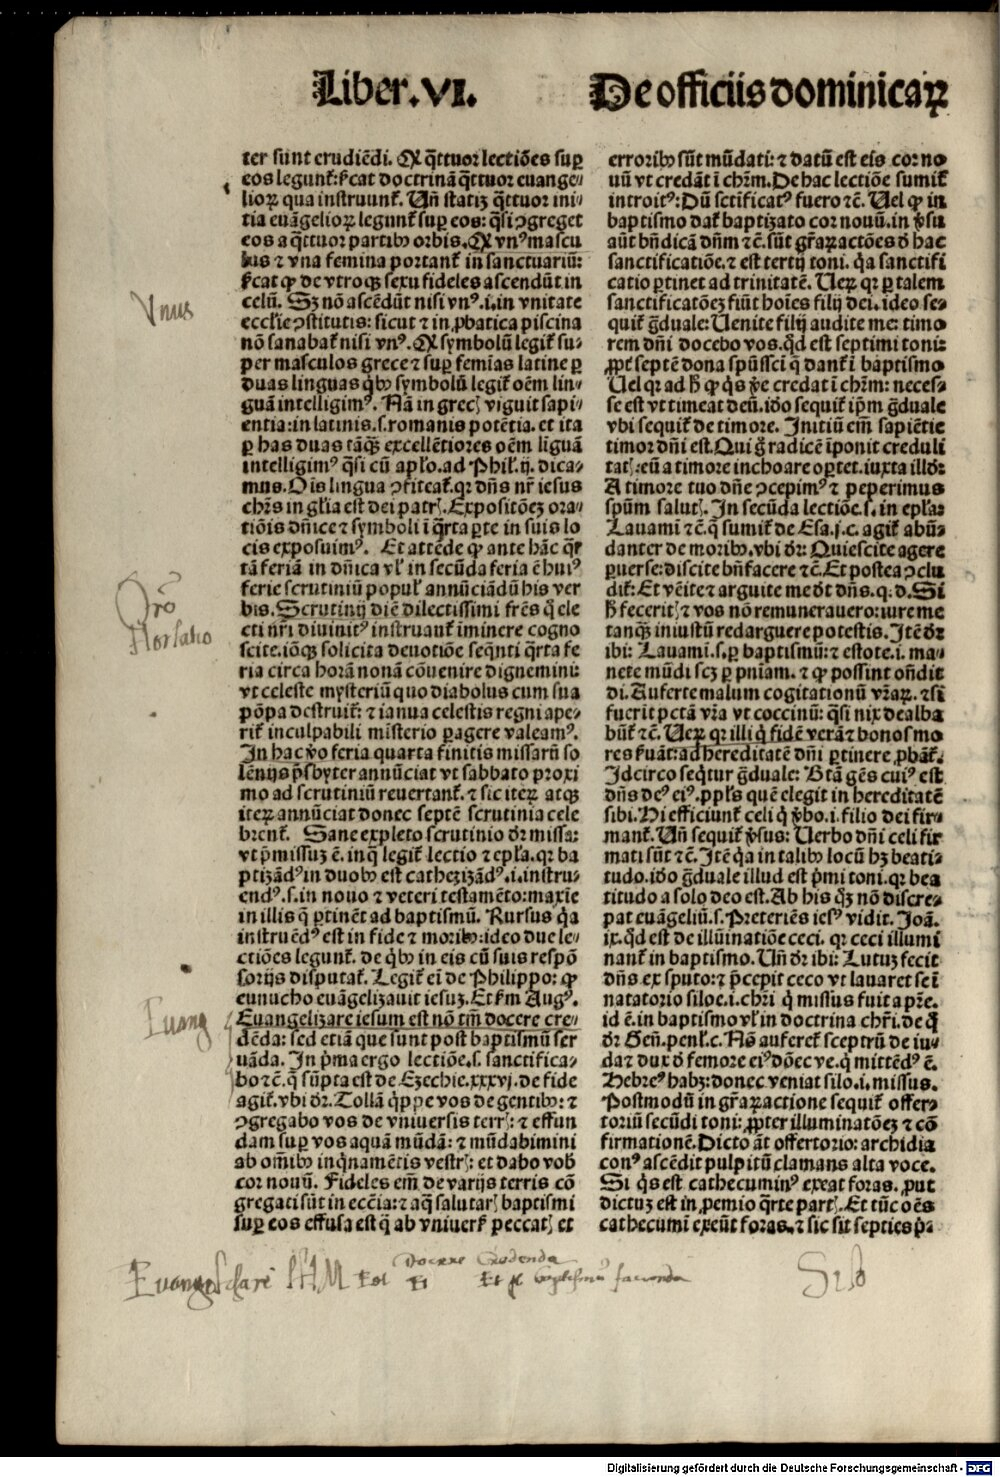 Liber.VI.
De officiis dominicaꝝ
ter sunt erudiẽdi. Et q̃ttuor lectiões suꝑ
eos legunt᷑: ſicat doctrinã q̃ttuor euange⸗
lioꝝ qua instruunt᷑. Uñ statiz q̃ttuor ini⸗
tia euãgelioꝝ legunt᷑ suꝑ eos: q̃si ꝯgreget
eos a q̃ttuor partibꝰ orbis. Et vnꝰ mascu
lus ⁊ vna femina portant᷑ in sanctuariũ:
ſicat ꝙ de vtroqꝫ sexu fideles ascendũt in
celũ. Sꝫ nõ ascẽdũt nisi vnꝰ.i.in vnitate
ecclĩe ꝯstitutis: sicut ⁊ in ꝓbatica piscina
nõ sanabat᷑ nisi vnꝰ. Et symbolũ legit᷑ su⸗
per masculos grece ⁊ suꝑ femĩas latine ꝑ
duas linguas q̃bꝰ symbolũ legit᷑ oẽm lin⸗
guã intelligimꝰ. Nã in grecꝭ viguit sapi⸗
entia: in latinis.s.romanis potẽtia. et ita
ꝑ has duas tãqꝫ excellẽtiores oẽm linguã
intelligimꝰ q̃si cũ apľo.ad Phil.ij. dica⸗
mus. Oĩs lingua ꝯfiteat᷑.qꝛ dñs nr̃ iesus
chr̃s in gľia est dei patrꝭ. Expositõeꝫ ora⸗
tiõis dñice ⁊ symboli ĩ q̃rta ꝑte in suis lo
cis exposuimꝰ. Et attẽde ꝙ ante hãc q̃r
tã feriã in dñica vľ in secũda feria ẽ huiꝰ
ferie scrutiniũ populꝭ annũciãdũ his ver
bis. Scrutinij diẽ dilectissimi frẽs q̃ ele
cti nr̃i diuinitꝰ instruant᷑ ĩminere cogno
scite.iõqꝫ solicita deuotiõe seq̃nti q̃rta fe
ria circa horã nonã cõuenire dignemini:
vt celeste mysteriũ quo diabolus cum sua
põpa destruit᷑: ⁊ ianua celestis regni ape⸗
rit᷑ inculpabili misterio ꝑagere valeamꝰ.
In hac ṽo feria quarta finitis missarũ so
lẽnijs p̃sbyter annũciat vt sabbato proxi
mo ad scrutiniũ reuertant᷑. ⁊ sic iteꝝ atqꝫ
iteꝝ annũciat donec septẽ scrutinia cele
brent᷑. Sane expleto scrutinio dr̃ missa:
vt p̃missuꝫ ẽ. in q̃ legit᷑ lectio ⁊ epľa. qꝛ ba
ptizãdꝰ in duobꝰ est cathezizãdꝰ.i.instru⸗
endꝰ.s.in nouo ⁊ veteri testamẽto: maxĩe
in illis q̃ ꝑtinẽt ad baptismũ. Rursus q̃a
instruẽdꝰ est in fide ⁊ moribꝰ: ideo due le⸗
ctiões legunt᷑. de q̃bꝰ in eis cũ suis respõ
sorijs disputat᷑. Legit᷑ eĩ de Philippo: ꝙ
eunucho euãgelizauit iesuꝫ. Et ſm Augꝰ.
Euangelizare iesum est nõ tm̃ docere cre⸗
dẽda: sed etiã que sunt post baptismũ ser
uãda. In p̃ma ergo lectiõe.s. sanctifica⸗
bo ⁊c̃. q̃ sũpta est de Ezechie.xxxvj. de fide
agit᷑. vbi dr̃. Tollã q̃ppe vos de gentibꝰ: ⁊
ꝯgregabo vos de vniuersis terrꝭ: ⁊ effun
dam suꝑ vos aquã mũdã: ⁊ mũdabimini
ab om̃ibꝰ inq̃namẽtis vestrꝭ: et dabo vob̃
cor nouũ. Fideles em̃ de varijs terris cõ
gregati sũt in ecc̃ia: ⁊ aq̃ salutarꝭ baptismi
suꝑ eos effusa est q̃ ab vniuersꝭ peccatꝭ et
erroribꝰ sũt mũdati: ⁊ datũ est eis cor no
uũ vt credãt ĩ chr̃m. De hac lectiõe sumit᷑
introitꝰ: Dũ sctificatꝰ fuero ⁊c̃. Uel ꝙ in
baptismo dat᷑ baptizato cor nouũ. in ṽsu
aũt bñdicã dñm ⁊c̃. sũt gr̃aꝝ actões ꝺ hac
sanctificatiõe. ⁊ est tertij toni. q̃a sanctifi
catio ꝑtinet ad trinitatẽ. Ueꝝ qꝛ ꝑ talem
sanctificatõeꝫ fiũt hoĩes filij dei. ideo se⸗
quit᷑ g̃duale: Uenite filij audite me: timo
rem dñi docebo vos. q̃d est septimi toni:
ꝓpt̃ septẽ dona spũssci q̃ dant᷑ ĩ baptismo
Uel qꝛ ad h̃ ꝙ q̃s ṽe credat ĩ chr̃m: neces⸗
se est vt timeat deũ. iõo sequit᷑ ip̃m g̃duale
vbi sequit᷑ de timore. Initiũ em̃ sapiẽtie
timor dñi est. Qui g̃ radicẽ ĩponit creduli
tatꝭ: eũ a timore inchoare oꝑtet. iuxta illð:
A timore tuo dñe ꝯcepimꝰ ⁊ peperimus
spũm salutꝭ. In secũda lectiõe.s. in epľa:
Lauamĩ ⁊c̃. q̃ sumit᷑ de Esa.j.c. agit᷑ abũ⸗
danter de moribꝰ. vbi dr̃: Quiescite agere
ꝑuerse: discite bñfacere ⁊c̃. Et postea ꝯclu
dit᷑: Et vẽite ⁊ arguite me ðt dñs. q.d. Si
h̃ feceritꝭ ⁊ vos nõ remunerauero: iure me
tanqꝫ iniustũ redarguere potestis. Itẽ dr̃
ibi: Lauamĩ.s.ꝑ baptismũ: ⁊ estote.i. ma⸗
nete mũdi scꝫ ꝑ pniam. ⁊ ꝙ possint oñdit
di. Auferte malum cogitationũ vr̃aꝝ. ⁊ si
fuerit pctã vr̃a vt coccinũ: q̃si nix dealba
bũt᷑ ⁊c̃. Ueꝝ qꝛ illi q̃ fidẽ verã ⁊ bonos mo
res ſuãt: ad hereditatẽ dñi ꝑtinere ꝓbãt᷑.
Idcirco seq̃tur g̃duale: Btã gẽs cuiꝰ est
dñs deꝰ eiꝰ. ppľs quẽ elegit in hereditatẽ
sibi. Hi efficiunt᷑ celi q̃ ṽbo.i.filio dei fir⸗
mant᷑. Uñ sequit᷑ ṽsus: Uerbo dñi celi fir
mati sũt ⁊c̃. Itẽ q̃a in talibꝰ locũ hꝫ beati⸗
tudo. iõo g̃duale illud est p̃mi toni. qꝛ bea
titudo a solo deo est. Ab his q̃ꝫ nõ discre⸗
pat euãgeliũ.s. Preteriẽs iesꝰ vidit. Joã.
ix. q̃d est de illũinatiõe ceci. qꝛ ceci illumi
nant᷑ in baptismo. Uñ dr̃ ibi: Lutuꝫ fecit
dñs ex sputo: ⁊ p̃cepit ceco vt lauaret se ĩ
natatorio siloe.i.chr̃i q̃ missus fuit a pr̃e.
id ẽ. in baptismo vľ in doctrina chr̃i. de q̃
dr̃ Geñ. penľ.c. Nõ auferet᷑ sceptrũ de iu⸗
da ⁊ dux ð femore eiꝰ dõec ve. q̃ mittẽdꝰ ẽ.
Hebreꝰ habꝫ: donec veniat silo.i.missus.
Postmodũ in gr̃aꝝ actione sequit᷑ offer⸗
toriũ secũdi toni: ꝓpter illuminatõeꝫ ⁊ cõ
firmationẽ. Dicto ãt offertorio: archidia
conꝰ ascẽdit pulpitũ clamans alta voce.
Si q̃s est cathecuminꝰ exeat foras. ꝓut
dictuꝫ est in ꝓemio q̃rte partꝭ. Et tũc oẽs
cathecumĩ exeũt foras. ⁊ sic sit septies p̃⸗
Vnus
Euang
Docere Credenda
Silo
Digitalisierung gefördert durch die Deutsche Forschungsgemeinschaft - DFG